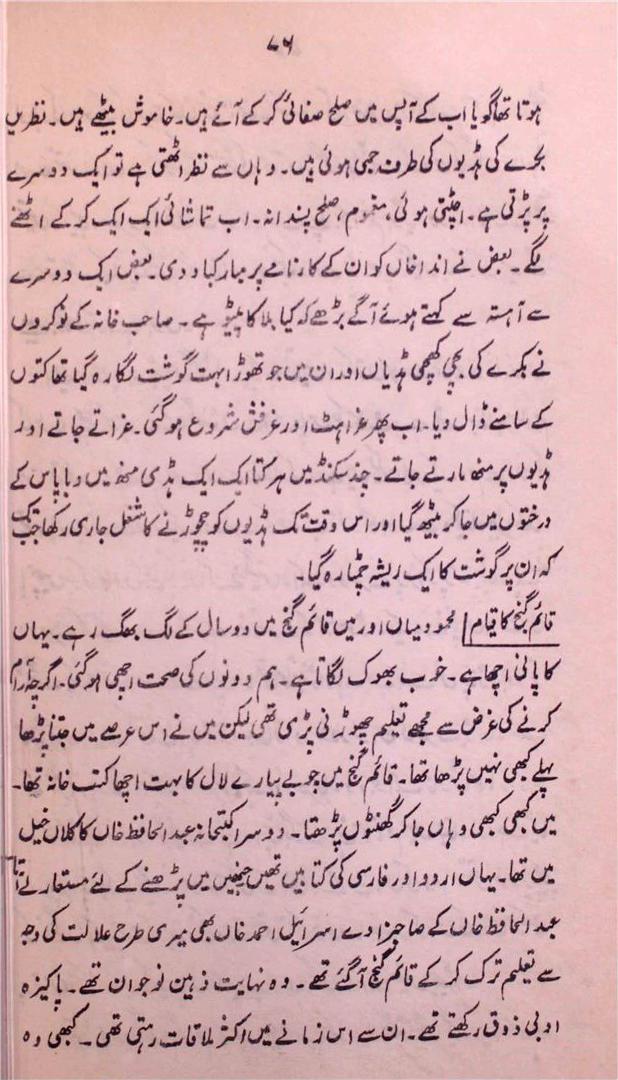 ۷۶
ہوتا تھا گویا اب کے آپس میں صلح صفائی کر کے آئے ہیں۔ خاموش بیٹھے ہیں۔ نظریں
بکرے کی ہڈیوں کی طرف جمی ہوئی ہیں۔ وہاں سے نظر اٹھتی ہے تو ایک دوسرے
پر پڑتی ہے۔ اچٹتی ہوئی، مغموم، صلح پسندانہ۔ اب تماشائی ایک ایک کر کے اٹھنے
لگے۔ بعض نے اندا خاں کو ان کے کارنامے پر مبارکباد دی۔ بعض ایک دوسرے
سے آہستہ سے کہتے ہوئے آگے بڑھے کہ کیا بلا کا پیٹو ہے۔ صاحب خانہ کے نوکروں
نے بکرے کی بچی کھچی ہڈیاں اور ان میں جو تھوڑا بہت گوشت لگا رہ گیا تھا کتوں
کے سامنے ڈال دیا۔ اب پھر غراہٹ اور غرفش شروع ہو گئی۔ غراتے جاتے اور
ہڈیوں پر منھ مارتے جاتے۔ چند سکنڈ میں ہر کتا ایک ایک ہڈی منھ میں دبا پاس کے
درختوں میں جا کر بیٹھ گیا اور اس وقت تک ہڈیوں کو چچوڑنے کا شغل جاری رکھا جب تک
کہ ان پر گوشت کا ایک ریشہ چمٹا رہ گیا۔
قائم گنج کا قیام محمود میاں اور میں قائم گنج میں دو سال کے لگ بھگ رہے۔ یہاں
کا پانی اچھا ہے۔ خوب بھوک لگاتا ہے۔ ہم دونوں کی صحت اچھی ہو گئی۔ اگرچہ آرام
کرنے کی غرض سے مجھے تعلیم چھوڑنی پڑی تھی لیکن میں نے اس عرصے میں جتنا پڑھا
پہلے کبھی نہیں پڑھا تھا۔ قائم گنج میں چوبے پیارے لال کا بہت اچھا کتب خانہ تھا۔
میں کبھی کبھی وہاں جا کر گھنٹوں پڑھتا۔ دوسرا کتبخانہ عبد الحافظ خاں کا کلاں خیل
میں تھا۔ یہاں اردو اور فارسی کی کتابیں تھیں جنھیں میں پڑھنے کے لئے مستعار لے آتا تھا۔
عبد الحافظ خاں کے صاحبزادے اسرائیل احمد خاں بھی میری طرح علالت کی وجہ
سے تعلیم ترک کر کے قائم گنج آ گئے تھے۔ وہ نہایت ذہین نوجوان تھے۔ پاکیزہ
ادبی ذوق رکھتے تھے۔ ان سے اس زمانے میں اکثر ملاقات رہتی تھی۔ کبھی وہ